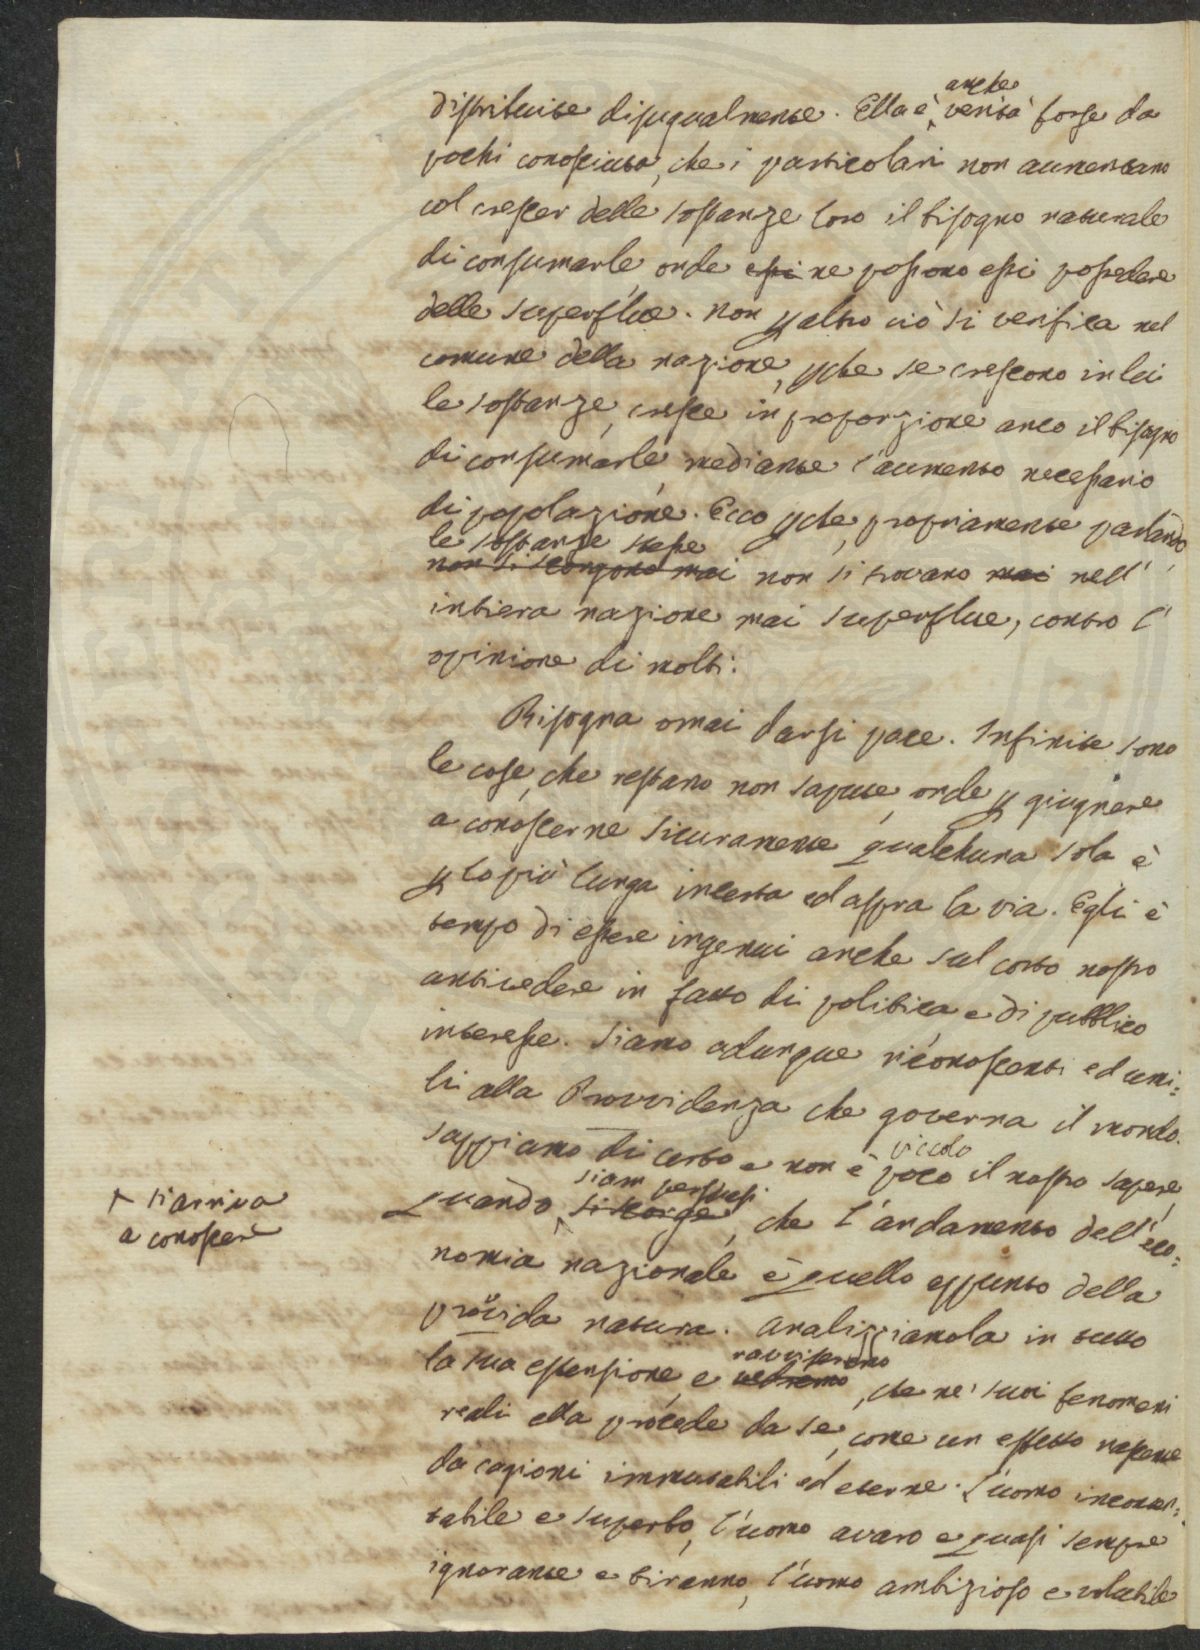 anche
distribuite disugualmente. Ella è verità forse da
pochi conosciuta, che i particolari non aumentano
col crescer delle sostanze loro il bisogno naturale
di consumarle, onde essi ne possono essi possedere
delle superflue. Non p altro ciò si verifica nel
comune della nazione, pchè se crescono in lei
le sostanze, cresce in proporzione anco il bisogno
di consumarle mediante l'aumento necessario
di popolazione. Ecco pchè, propriamente parlando,
le sostanze stesse
non si scorgono mai non si trovano mai nell'
intiera nazione mai superflue, contro l'
opinione di molti.
Bisogna omai darsi pace. Infinite sono
le cose, che restano non sapute, onde p giugnere
a conoscerne sicuramente qualchuna sola è
p lo più lunga incerta ed aspra la via. Egli è
tempo di essere ingenui anche sul corto nostro
antivedere in fatto di politica e di pubblico
interesse. Siamo adunque riconoscenti ed umi=
li alla Provvidenza che governa il mondo.
Sappiamo di certo e non è poco il nostro sapere,
piccolo
siam persuasi
quando si scorge, che l'andamento dell'eco=
+ si arriva
a conoscere
nomia nazionale è quello appunto della
provida natura. Analizziamola in tutta
la sua estensione, e vedremo, che ne' suoi fenomeni
ravviseremo
reali ella procede da se, come un effetto nascente
da cagioni immutabili ed eterne. L'uomo inconten=
tabile e superbo, l'uomo avaro e quasi sempre
ignorante e tiranno, l'uomo ambizioso e volubile